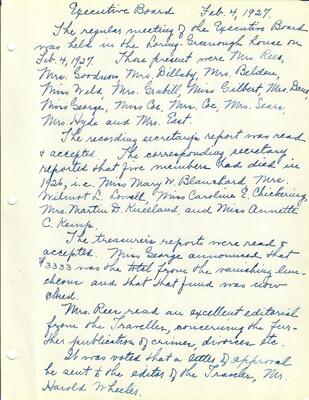 Executive Board Feb. 4, 1927.
The regular meeting of the Executive Board
was held in the Loring-Greenough house on
Feb. 4, 1927. Those present were Mrs. Rees,
Mrs. Goodnow, Mrs. Dillaby, Mrs. Beldon,
Miss Weld Mrs. Grabill, Miss Gilbert Mrs Dene,
Miss George, Miss Coe, Mrs. Coe, Mrs. Sears,
Mrs. Hyde and Mrs. Post.
The recording secretary's report was read
& accepted. The corresponding secretary
reported that five members had died in
1926, i.e. Miss Mary W. Blanchard, Mrs.
Wilmot L. Lowell, Miss Caroline E. Chickering,
Mrs. Martin D. Kneeland, and Miss Annette
C. Kemp.
The treasurer's reports were read &
accepted. Miss George announced that
$3333 was the total from the vanishing lun-
cheons and that that fund was now
closed.
Mrs. Rees read an excellent editorial
from the Traveller, concerning the fur-
ther publication of crimes, divorces etc.
It was voted that a letter of approval
be sent to the editor of the Traveler, Mr.
Harold Wheeler.